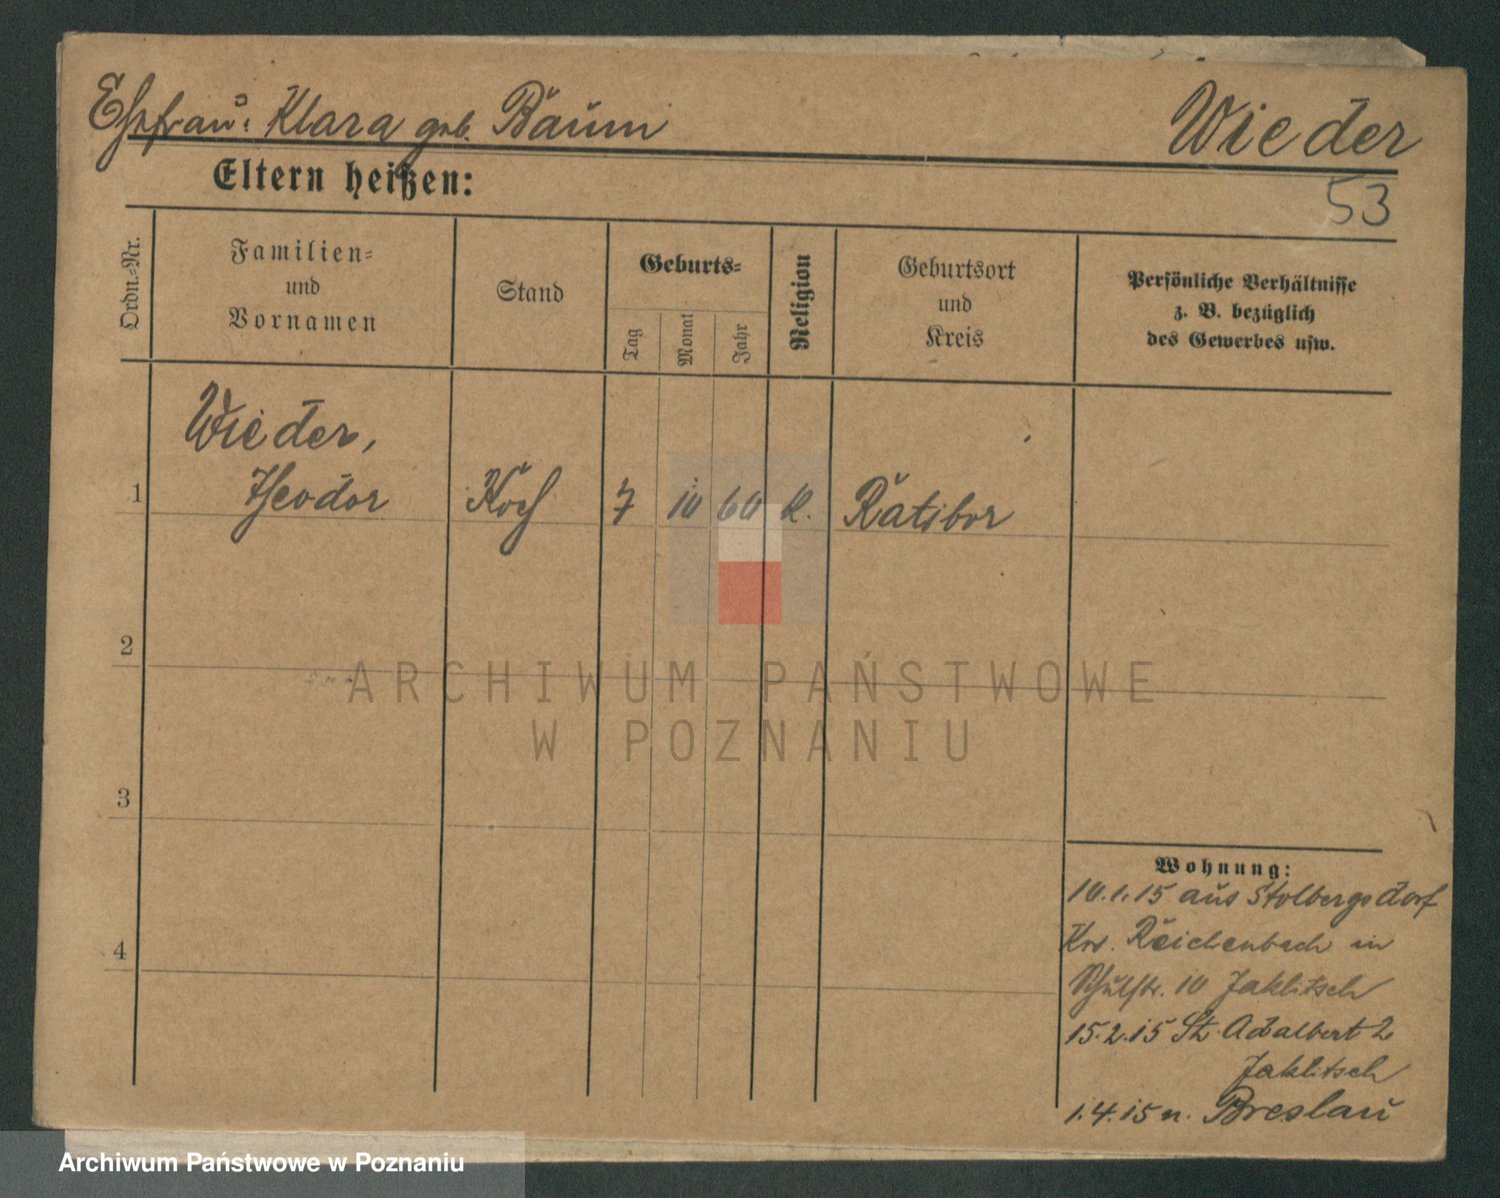 Ehefrau: Klara geb. Baum
Wieder
Eltern heißen:
53
Ordn.-Nr.
Familien-
und
Vornamen
Stand
Geburts-
Tag
Monat
Jahr
Religion
Geburtsort
und
Kreis
Persönliche Verhältnisse
z. B. bezüglich
des Gewerbes usw.
Wieder,
1 Theodor Koch 7 10 60 k. Ratibor
2
3
4
Wohnung:
10.1.15 aus Stolbergsdorf
Krs. Reichenbach in
Schulstr. 10 Jaklitsch
15.2.15 St. Adalbert 2
Jaklitsch
1.4.15 n. Breslau
ARCHIWUM PAŃSTWOWE
W POZNANIU
Archiwum Państwowe w Poznaniu